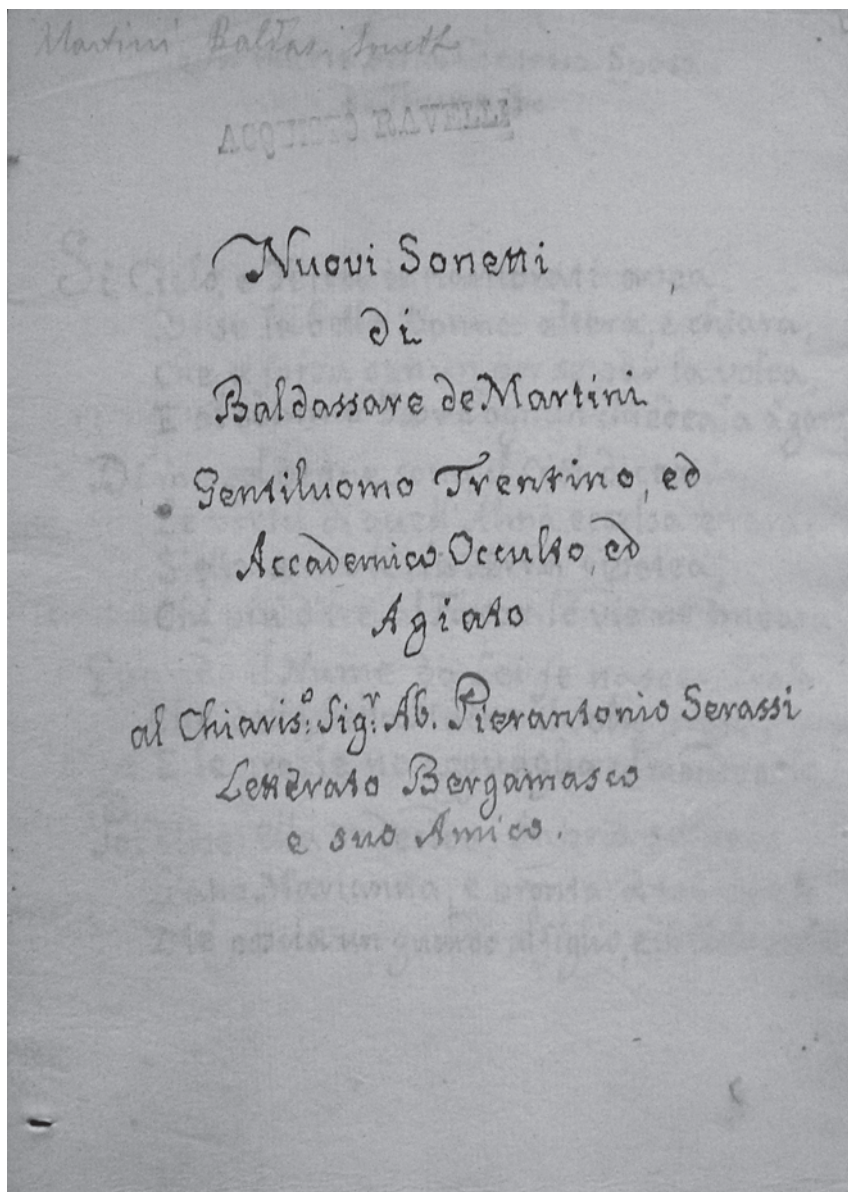 Martini Baldas. Sonetti
ACQUISTO RAVELLI
Nuovi Sonetti
di
Baldassare de Martini
Gentiluomo Trentino, ed
Accademico Occulto, ed
Agiato
al Chiaris.º Sig.r Ab. Pierantonio Serassi
Letterato Bergamasco
e suo Amico.